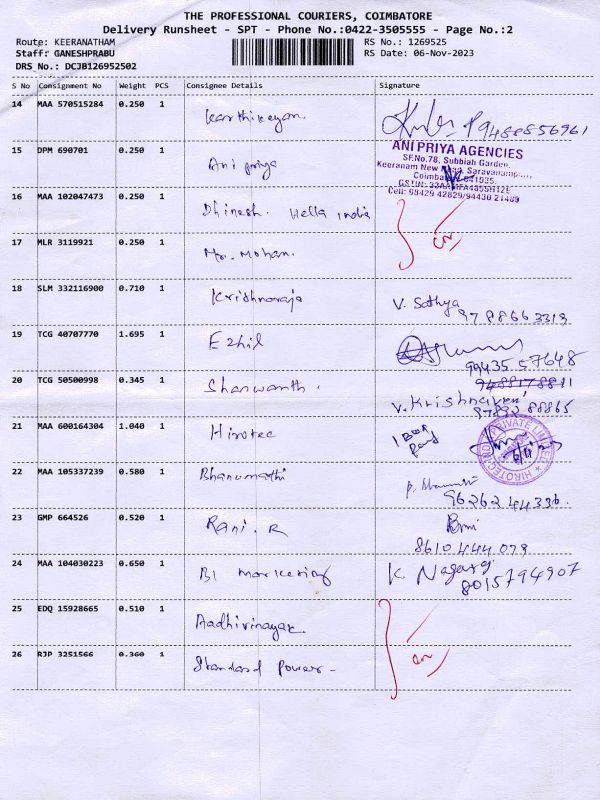 THE PROFESSIONAL COURIERS, COIMBATORE
Delivery Runsheet - SPT - Phone No.:0422-3505555 - Page No.:2
Route: KEERANATHAM
RS No.: 1269525
Staff: GANESHPRABU
RS Date: 06-Nov-2023
DRS No.: DCJB126952502
S No Consignment No Weight PCS Consignee Details Signature
14 MAA 570515284 0.250 1 Karthikeyan. 9488856961
15 DPM 690701 0.250 1 Ani priya
ANI PRIYA AGENCIES
SF.No.78, Subbiah Garden,
Keeranam New Road, Saravanampatti,
Cell: 98429 42829/94430 21489
16 MAA 102047473 0.250 1 Dhinesh. Hella India
17 MLR 3119921 0.250 1 Mr. Mohan.
18 SLM 332116900 0.710 1 Krishnaraja V. Sathya
9788663319
19 TCG 40707770 1.695 1 Ezhil
99435 57648
20 TCG 50500998 0.345 1 Sharwanth. 9488178811
V. Krishnaveni
97892 88865
21 MAA 600164304 1.040 1 Hirotec 1 Box
22 MAA 105337239 0.580 1 Bhanumathi
96262 44336.
23 GMP 664526 0.520 1 Rani. R
8610444079
24 MAA 104030223 0.650 1 BI Marketing K. Nagaraj
8015794907
25 EDQ 15928665 0.510 1 Aadhivinayak
26 RJP 3251566 0.360 1 Standard Power -